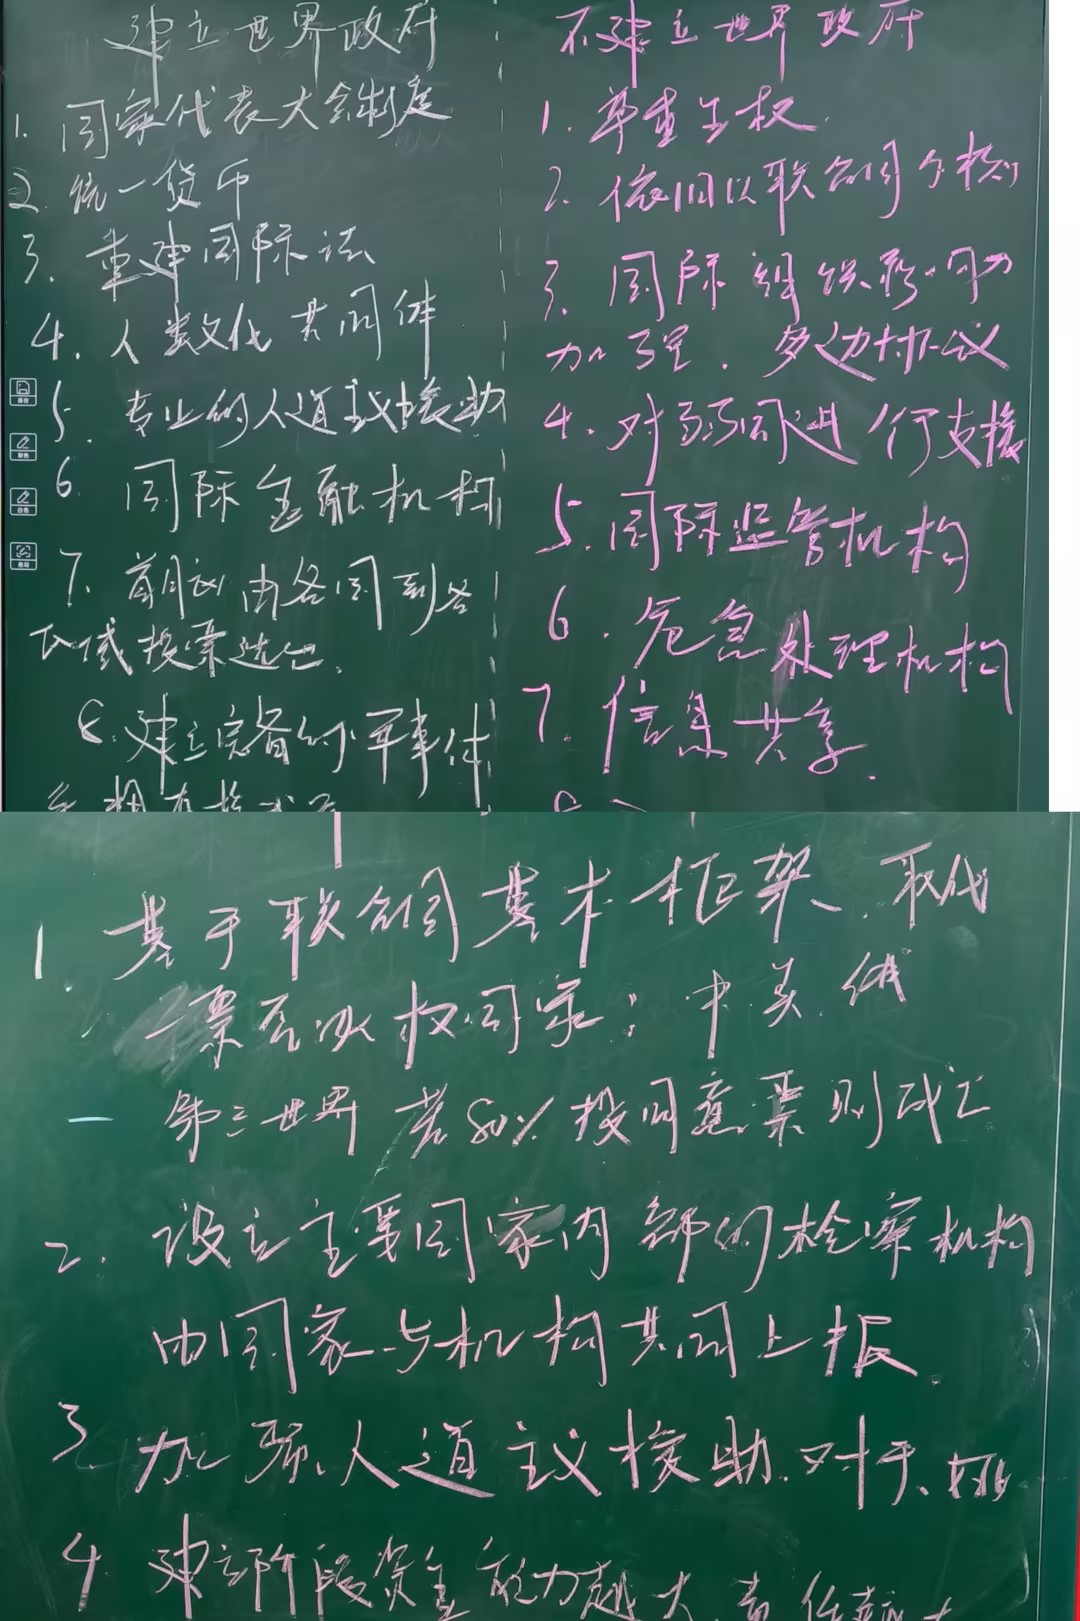 建立世界政府
1. 国家代表大会制度
2. 统一货币
3. 重建国际法
4. 人类文化共同体
5. 专业的人道主义援助
6 国际金融机构
7. 首脑由各国到各
区域投票选出.
8. 建立完备的军事体
系拥有
不建立世界政府
1. 尊重主权
2. 依旧以联合国为核心
3. 国际组织影响力
加强. 多边协议
4. 对弱国进行支援
5. 国际监管机构
6. 危急处理机构
7. 信息共享.
1. 基于联合国基本框架. 取代
一票否决权国家: 中 美 俄
第三世界 若80%投同意票则成立
2. 设立主要国家内部的检察机构
由国家与机构共同上报.
3 加强人道主义援助. 对于
4 建立阶段资金 能力越大 责任越大